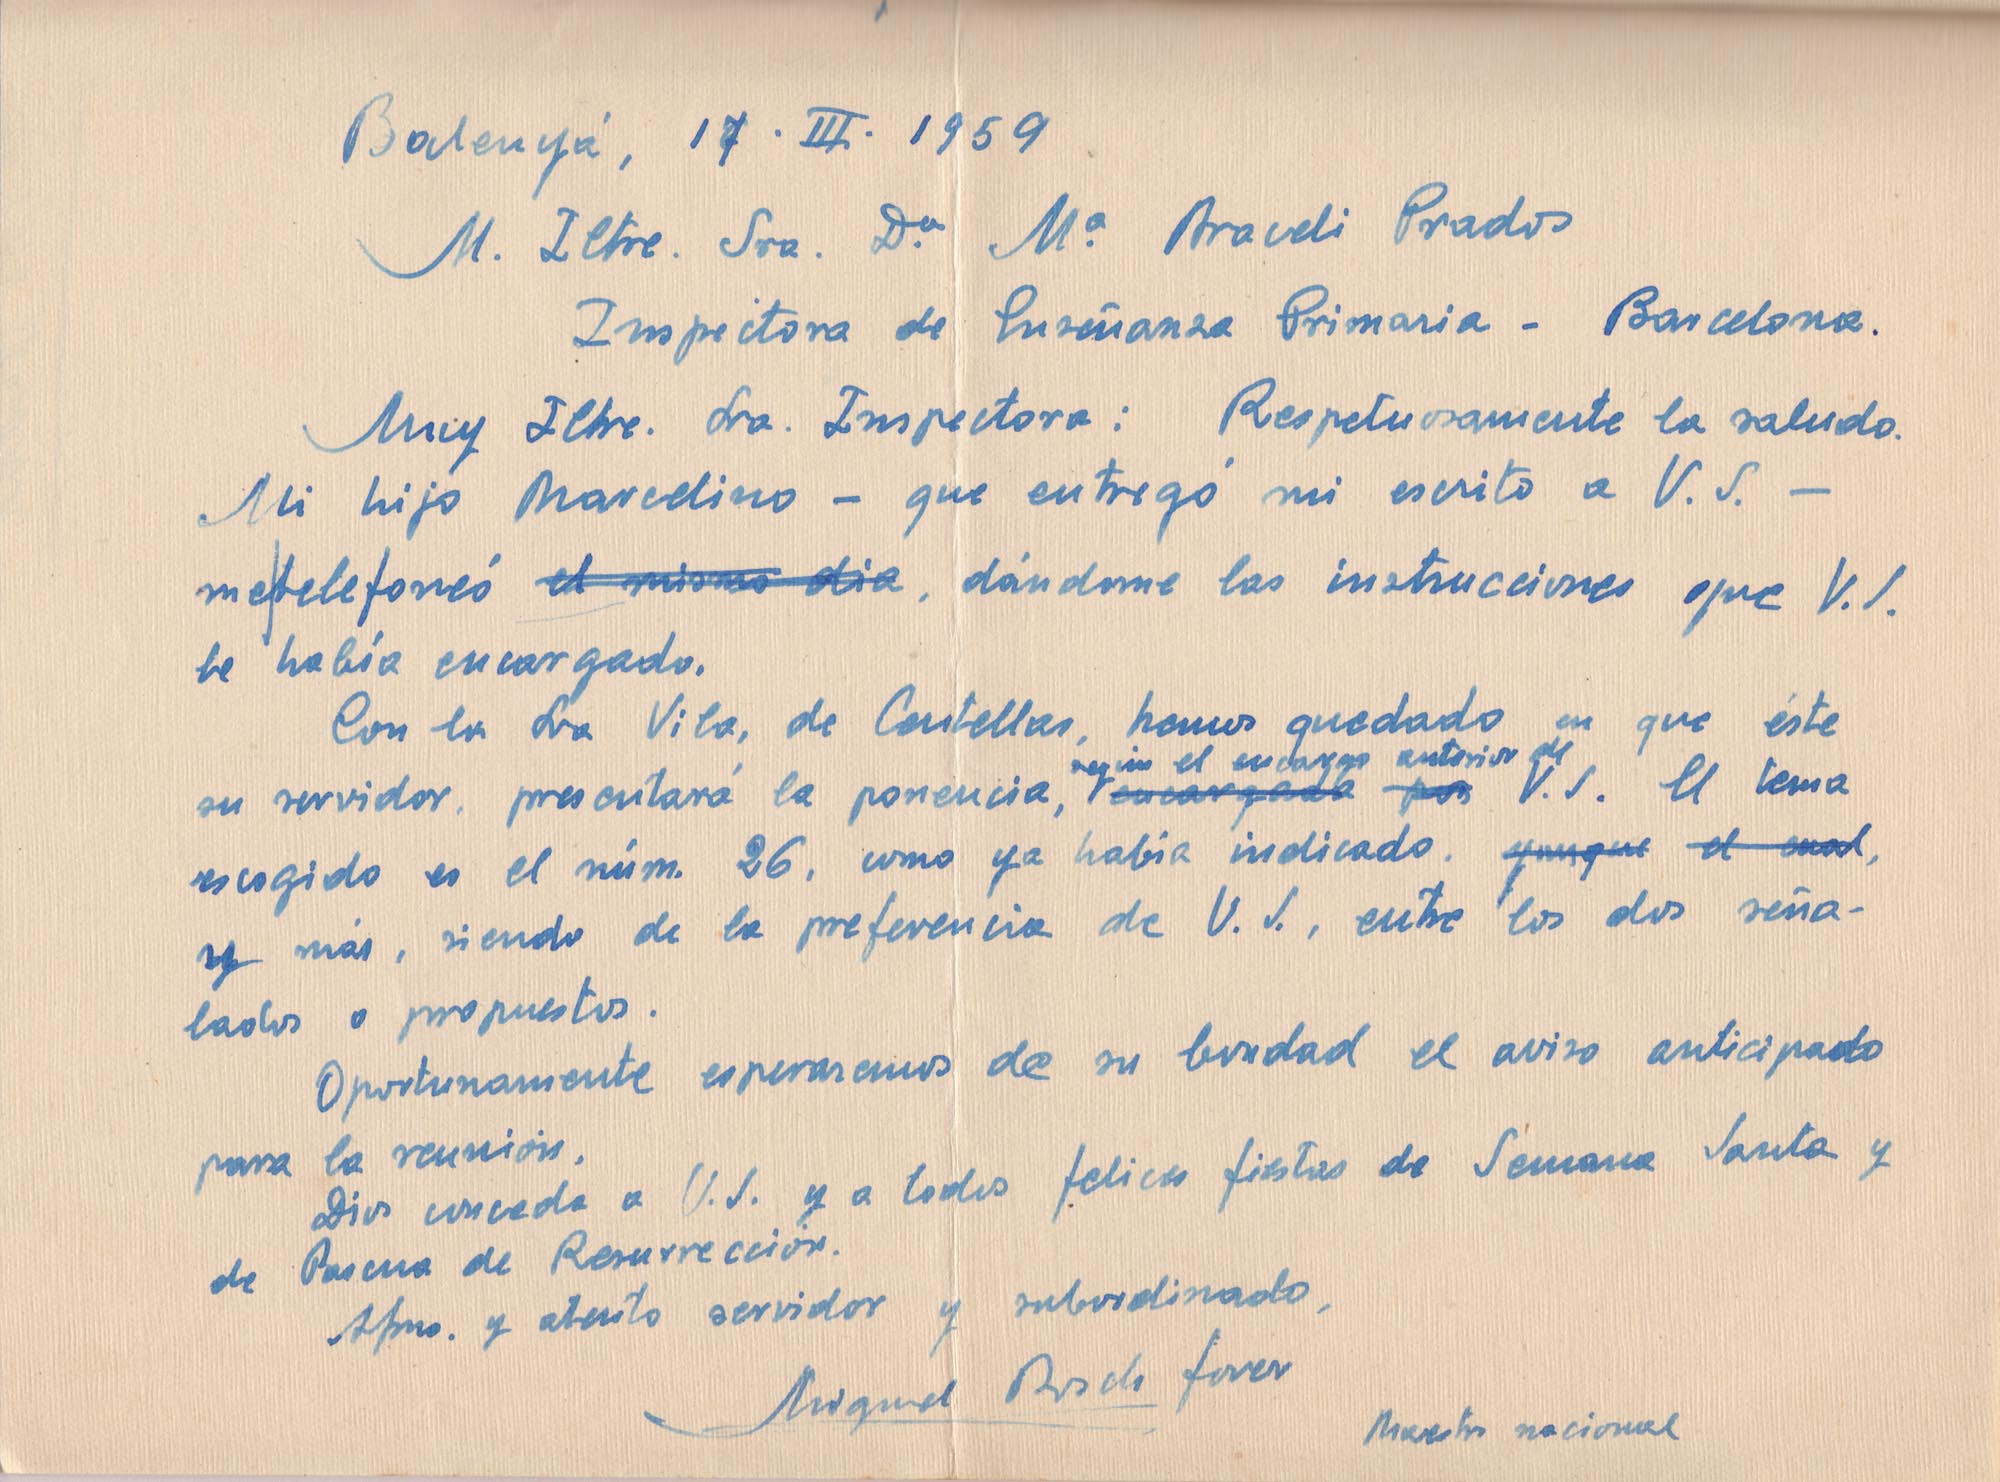 Balenyá, 17 · III · 1959
M. Iltre. Sra. D.ª Mª Araceli Prados
Inspectora de Enseñanza Primaria - Barcelona.
Muy Iltre. Sra. Inspectora: Respetuosamente la saludo.
Mi hijo Marcelino - que entregó mi escrito a V. S. -
me telefoneó el mismo dia, dándome las instrucciones que V. S.
le había encargado.
Con la Sra Vila, de Centellas, hemos quedado en que éste
según el encargo anterior de
su servidor, presentará la ponencia, encargada por V. S. El tema
escogido es el núm. 26, como ya había indicado. yunque el cual,
y más, siendo de la preferencia de V. S., entre los dos seña-
lados o propuestos.
Oportunamente esperaremos de su bondad el aviso anticipado
para la reunión.
Dios conceda a V. S. y a todos felices fiestas de Semana Santa y
de Pascua de Resurrección.
Afmo. y atento servidor y subordinado,
Miguel Bosch Jover
Maestro nacional